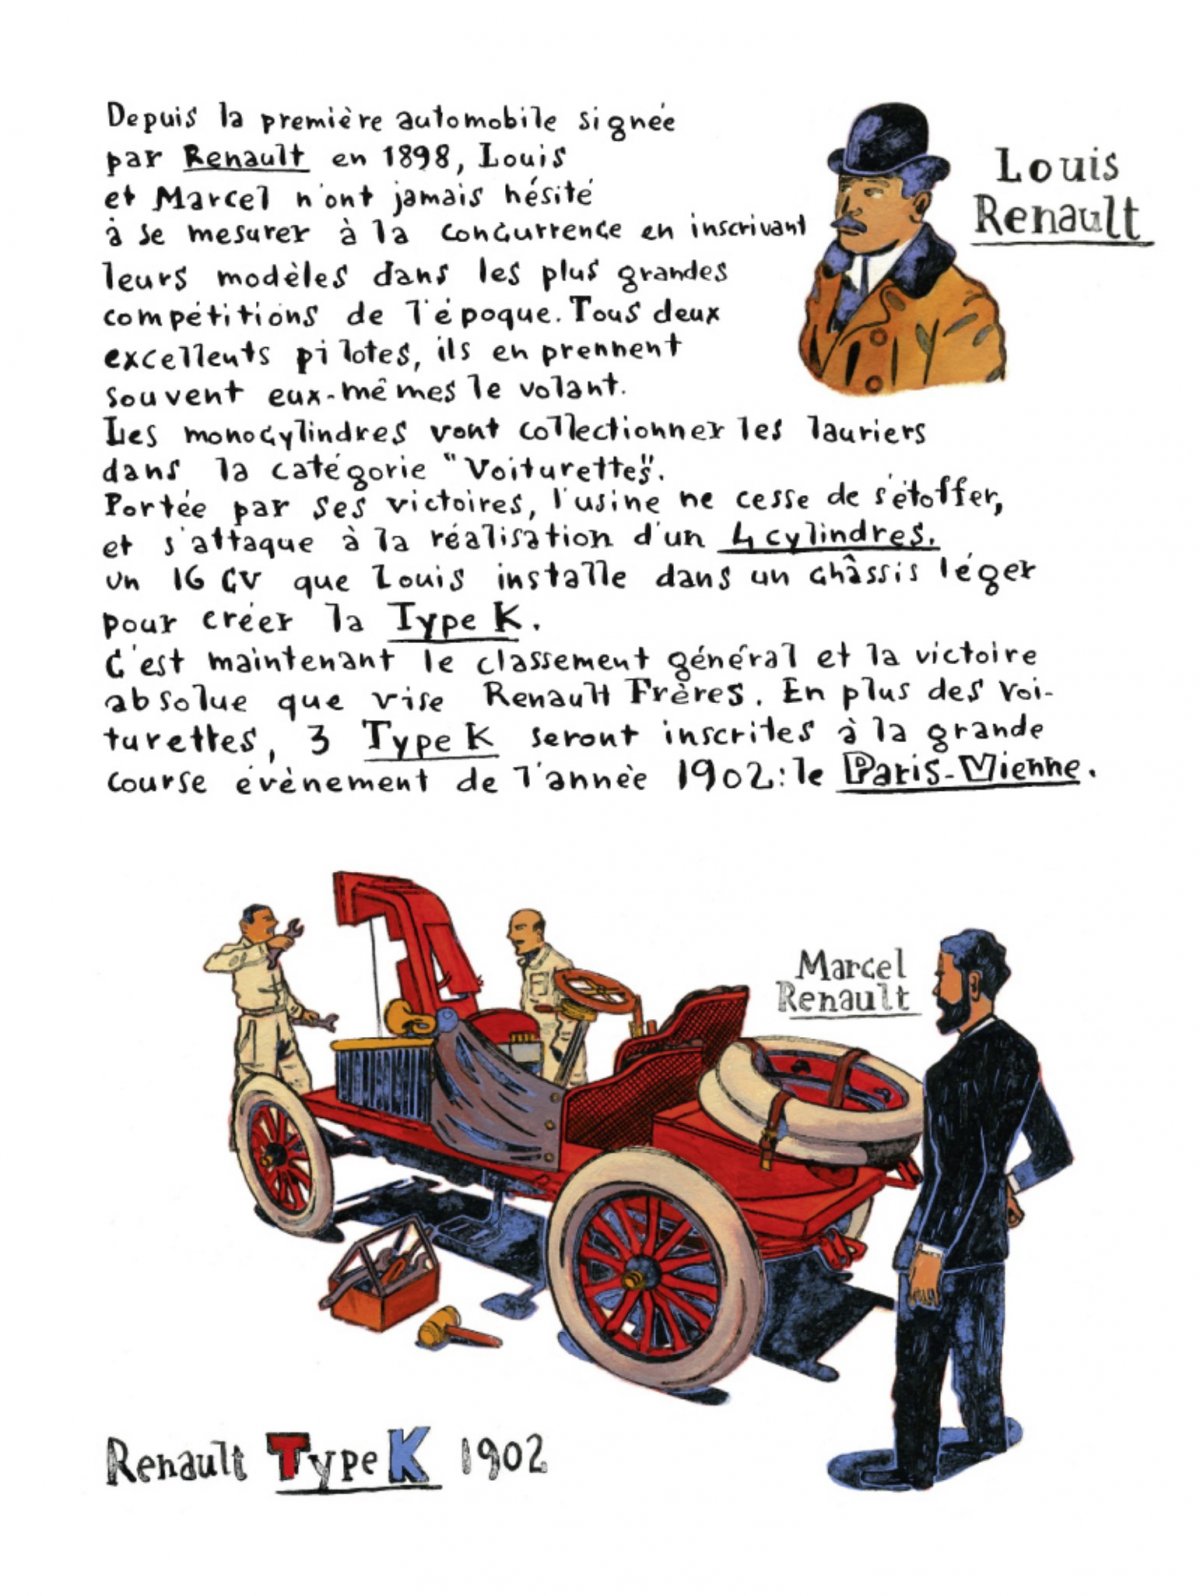 Depuis la première automobile signée
par Renault en 1898, Louis
et Marcel n'ont jamais hésité
à se mesurer à la concurrence en inscrivant
leurs modèles dans les plus grandes
compétitions de l'époque. Tous deux
excellents pilotes, ils en prennent
souvent eux-mêmes le volant.
Les monocylindres vont collectionner les lauriers
dans la catégorie "Voiturettes".
Portée par ses victoires, l'usine ne cesse de s'étoffer,
et s'attaque à la réalisation d'un 4 cylindres.
Un 16 CV que Louis installe dans un châssis léger
pour créer la Type K.
C'est maintenant le classement général et la victoire
absolue que vise Renault Frères. En plus des voi-
turettes, 3 Type K seront inscrites à la grande
course évènement de l'année 1902: le Paris-Vienne.
Louis
Renault
Marcel
Renault
Renault Type K 1902